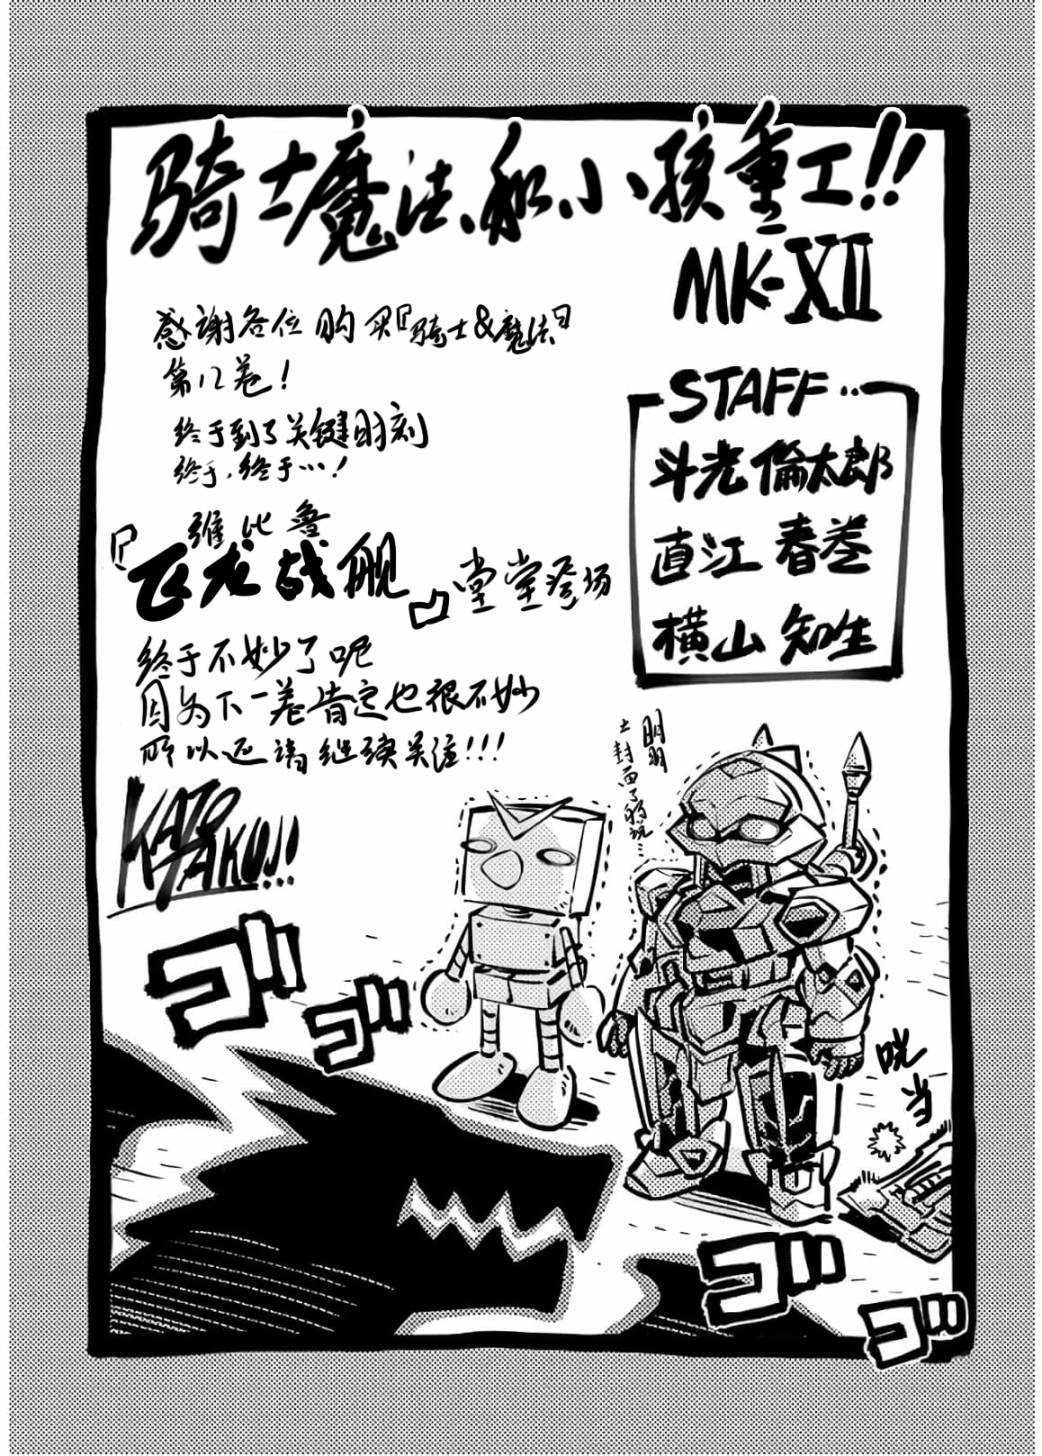 骑士魔法和小孩重工!!
MK-XII
感谢各位购买『骑士&魔法』
第12卷!
终于到了关键时刻
终于,终于…!
维比鲁
『飞龙战舰』堂堂登场
终于不妙了呢
因为下一卷肯定也很不妙
所以还请继续关注!!!
KATO TAKU!!
STAFF‥
斗光倫太郎
直江 春巻
横山 知生
明明
上封面了的说…
ゴ゛
ゴ゛
咣
当
ゴ゛
ゴ゛